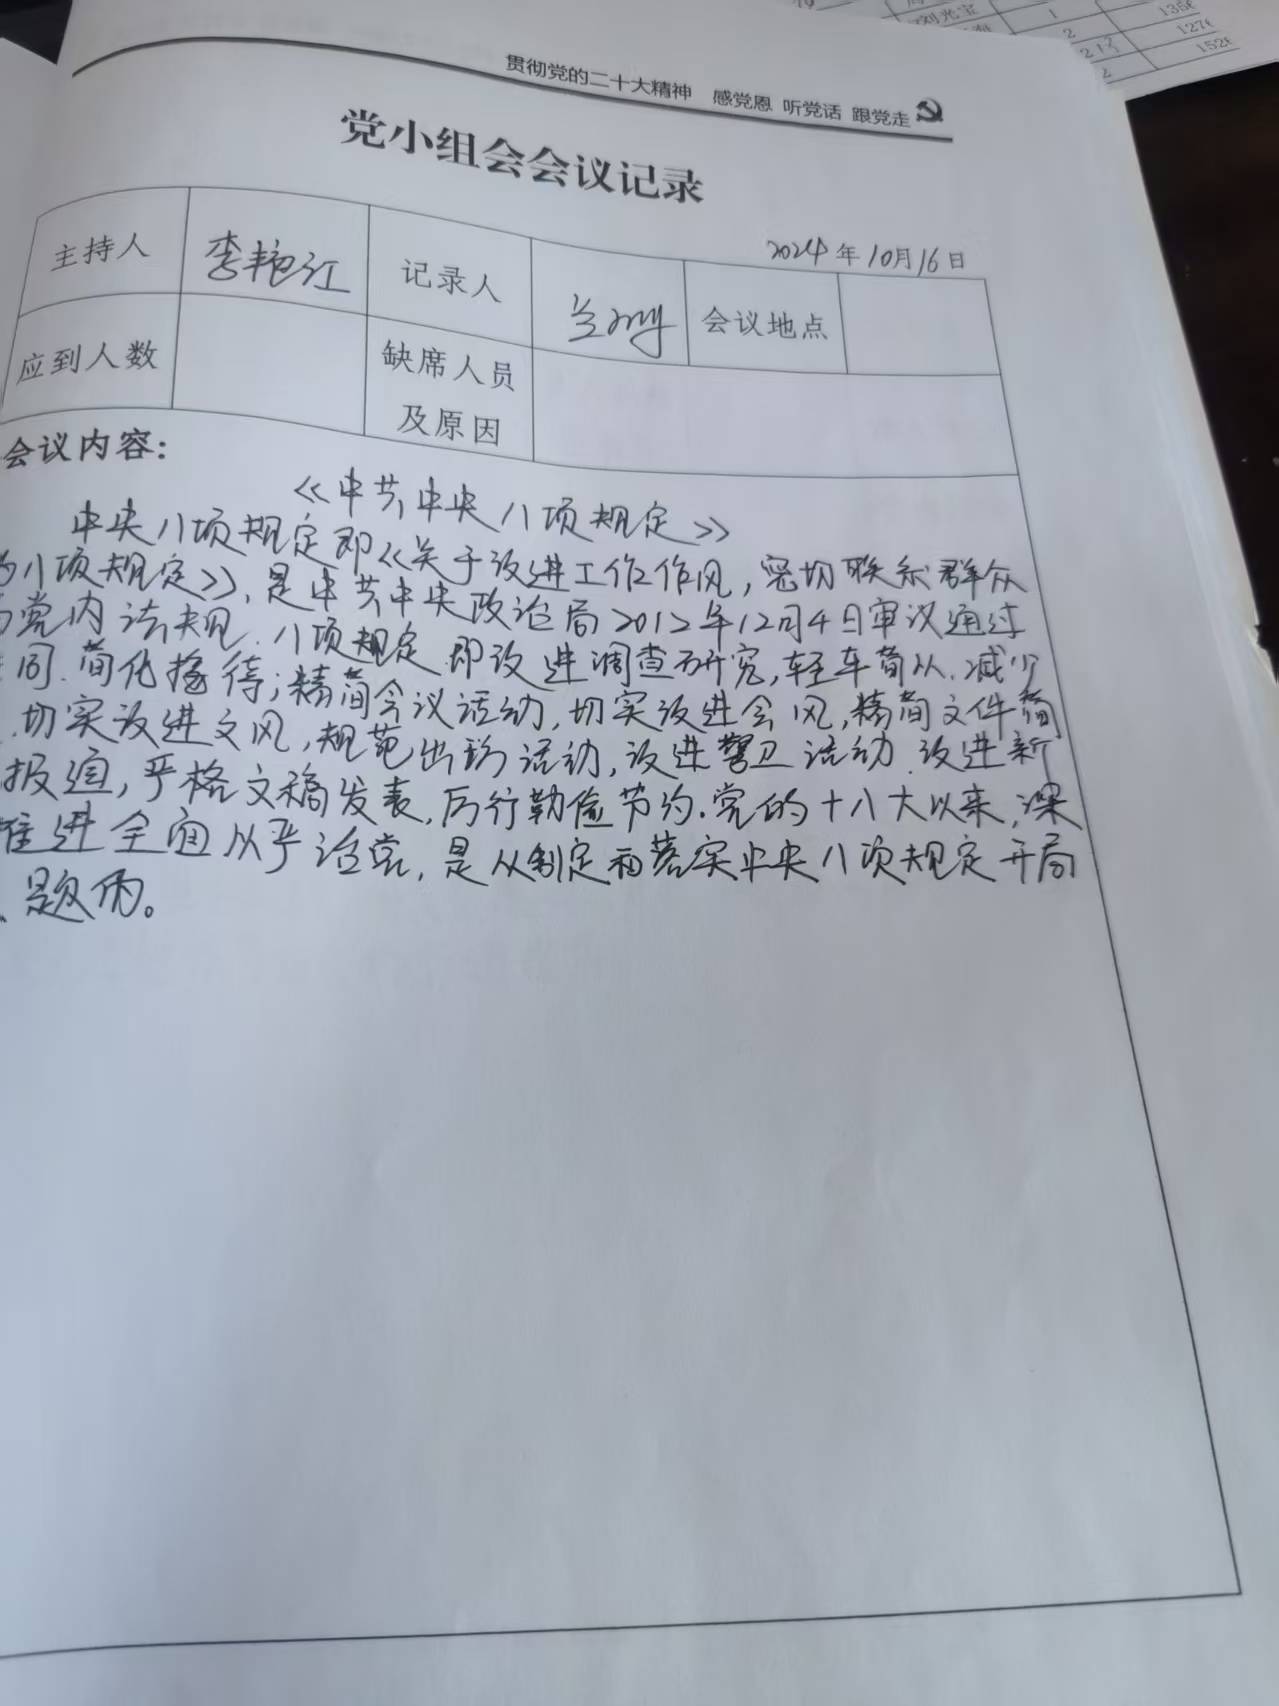 刘光宝
1
1356
2
127
152
贯彻党的二十大精神 感党恩 听党话 跟党走
党小组会会议记录
2024年10月16日
主持人 李艳江 记录人 会议地点
应到人数 缺席人员
及原因
会议内容：
《中共中央八项规定》
中央八项规定即《关于改进工作作风，密切联系群众
八项规定》，是中共中央政治局2012年12月4日审议通过
党内法规．八项规定，即改进调查研究，轻车简从．减少
同．简化接待；精简会议活动，切实改进会风，精简文件简
．切实改进文风，规范出访活动，改进警卫活动．改进新
报道，严格文稿发表，厉行勤俭节约．党的十八大以来，深
推进全面从严治党，是从制定和落实中央八项规定开局
题的。